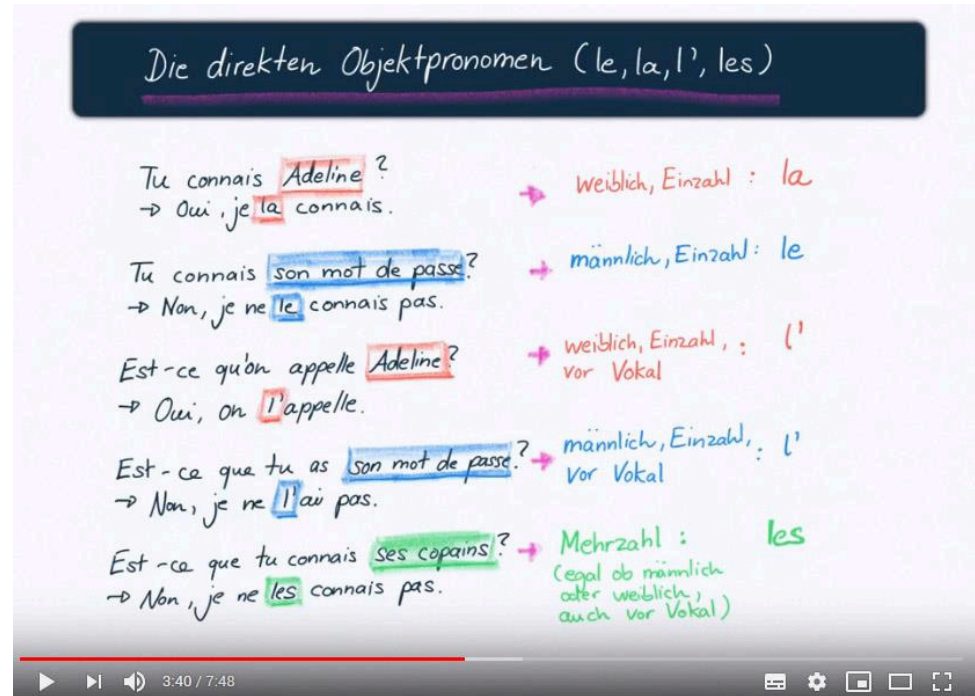 Die direkten Objektpronomen (le, la, l', les)
Tu connais Adeline ?
→ Oui, je la connais.
→ weiblich, Einzahl : la
Tu connais son mot de passe?
→ Non, je ne le connais pas.
→ männlich, Einzahl : le
Est-ce qu'on appelle Adeline?
→ Oui, on l'appelle.
→ weiblich, Einzahl, : l'
vor Vokal
Est-ce que tu as son mot de passe?
→ Non, je ne l'ai pas.
→ männlich, Einzahl, : l'
vor Vokal
Est-ce que tu connais ses copains?
→ Non, je ne les connais pas.
→ Mehrzahl : les
(egal ob männlich
oder weiblich,
auch vor Vokal)
3:40 / 7:48